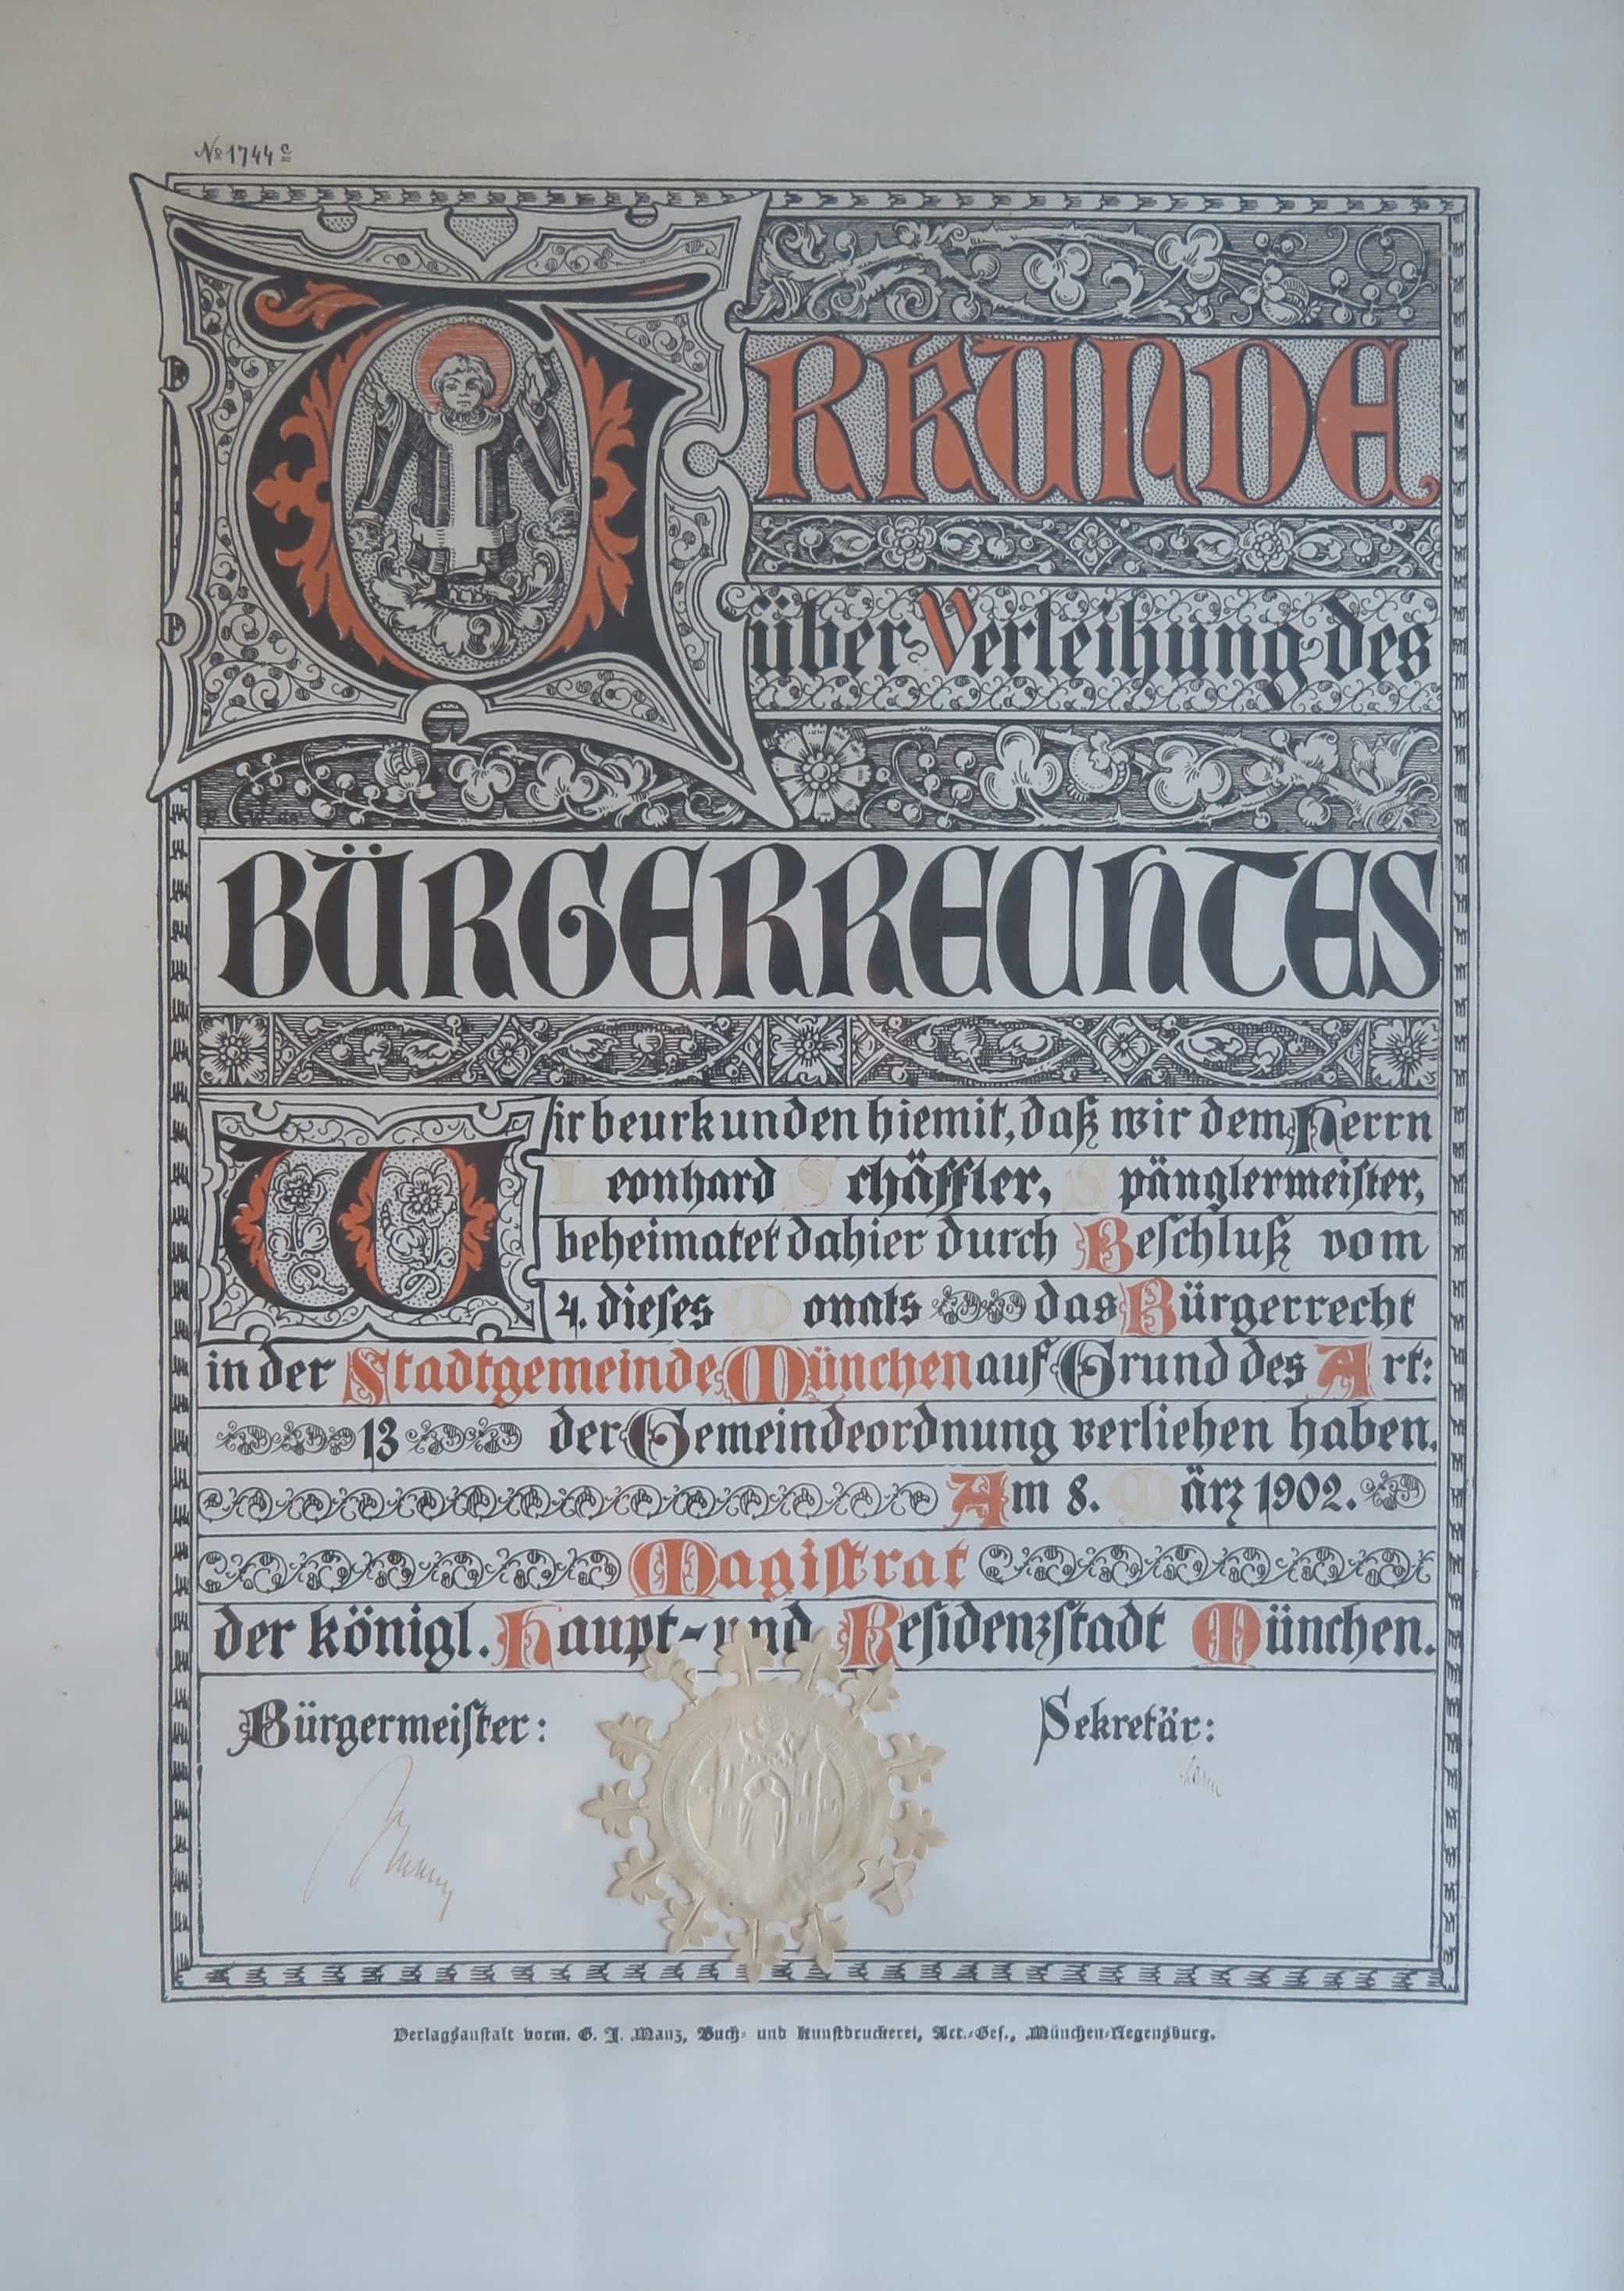 № 1744 c
URKUNDE
über Verleihung des
BÜRGERRECHTES
Wir beurkunden hiemit, daß wir dem Herrn
Leonhard Schäffler, Spänglermeister,
beheimatet dahier durch Beschluß vom
4. dieses Monats das Bürgerrecht
in der Stadtgemeinde München auf Grund des Art:
13 der Gemeindeordnung verliehen haben.
Am 8. März 1902.
Magistrat
der königl. Haupt- und Residenzstadt München.
Bürgermeister: Sekretär:
Verlagsanstalt vorm. G. J. Manz, Buch- und Kunstdruckerei, Act.-Ges., München-Regensburg.